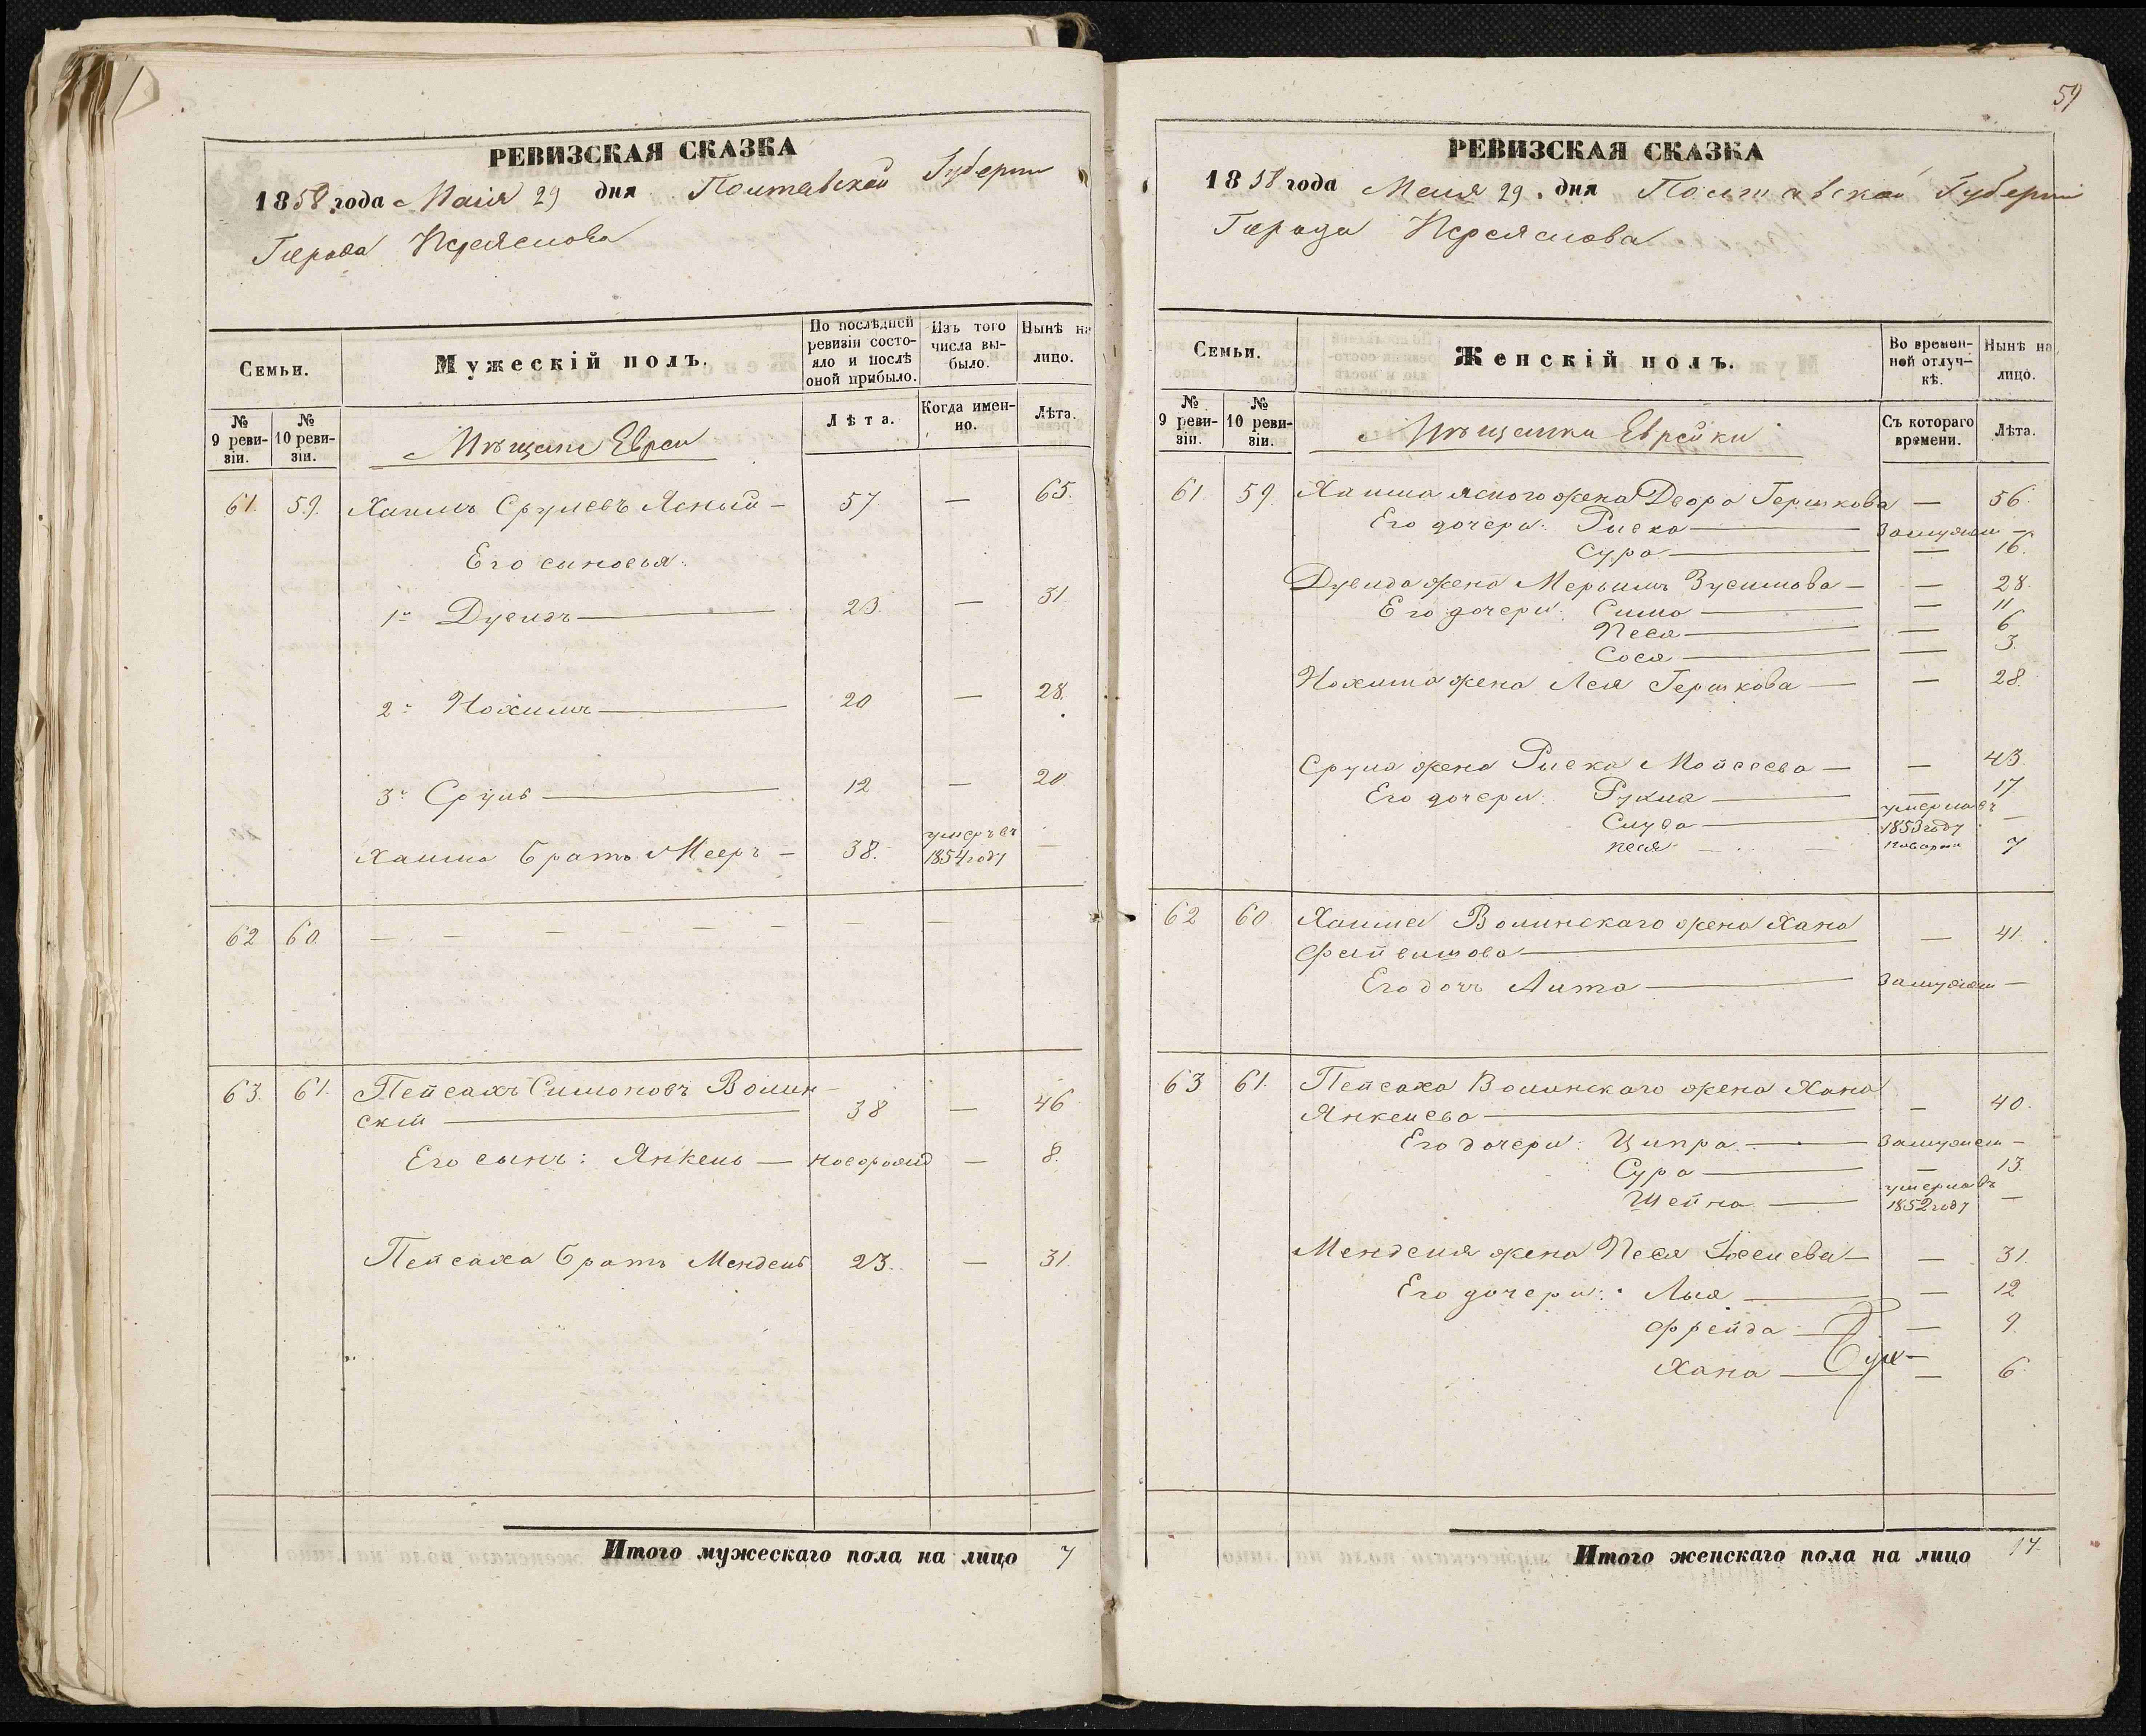 РЕВИЗСКАЯ СКАЗКА
1858 года Маія 29 дня Полтавской Губерніи
Города Переяслова
Семьи.
Мужескій полъ.
По послѣдней ревизіи состояло и послѣ оной прибыло.
Изъ того числа выбыло.
Нынѣ на лицо.
№ 9 ревизіи.
№ 10 ревизіи.
Мѣщане Евреи
Лѣта.
Когда именно.
Лѣта.
61. 59. Хаимъ Срулевъ Ясный — 57 — 65.
Его сыновья:
1й Дувидъ — 23. — 31.
2й Нохимъ — 20 — 28.
3й Сруль — 12 — 20
Хаима братъ Мееръ — 38. умеръ въ 1854 году —
62 60. — — — — — — — —
63. 61. Пейсахъ Симоновъ Волин-
скій — 38 — 46
Его сынъ: Янкель — новорожд — 8.
Пейсаха братъ Мендель 23. — 31
Итого мужескаго пола на лицо 7
59
РЕВИЗСКАЯ СКАЗКА
1858 года Маія 29. дня Полтавской Губерніи
Города Переяслова
Семьи.
Женскій полъ.
Во временной отлучкѣ.
Нынѣ на лицо.
№ 9 ревизіи.
№ 10 ревизіи.
Мѣщанки Еврейки
Съ котораго времени.
Лѣта.
61. 59. Хаима Ясного жена Двора Гершкова — 56.
Его дочери: Ривка — Замужем —
Сура — — 16.
Дувида жена Мерьимъ Зусимова — — 28.
Его дочери: Сима — — 11
Песя — — 6
Сося — — 3.
Нохима жена Лея Гершкова — — 28.
Срула жена Ривка Мойсеева — — 43.
Его дочери: Рухля — — 17
Слува — умерла въ 1853 году —
Песя — — 7
62 60 Хаима Волинскаго жена Хана
Файвишова — — 41.
Его дочь Лита — Замужем —
63 61. Пейсаха Волинскаго жена Хана
Янкелева — — 40.
Его дочери: Ципра — Замужем —
Сура — — 13.
Шейна — умерла въ 1852 году —
Менделя жена Песя — — 31.
Его дочери: Лыя — — 12
Фрейда — — 9.
Хана — — 6
Итого женскаго пола на лицо 17.